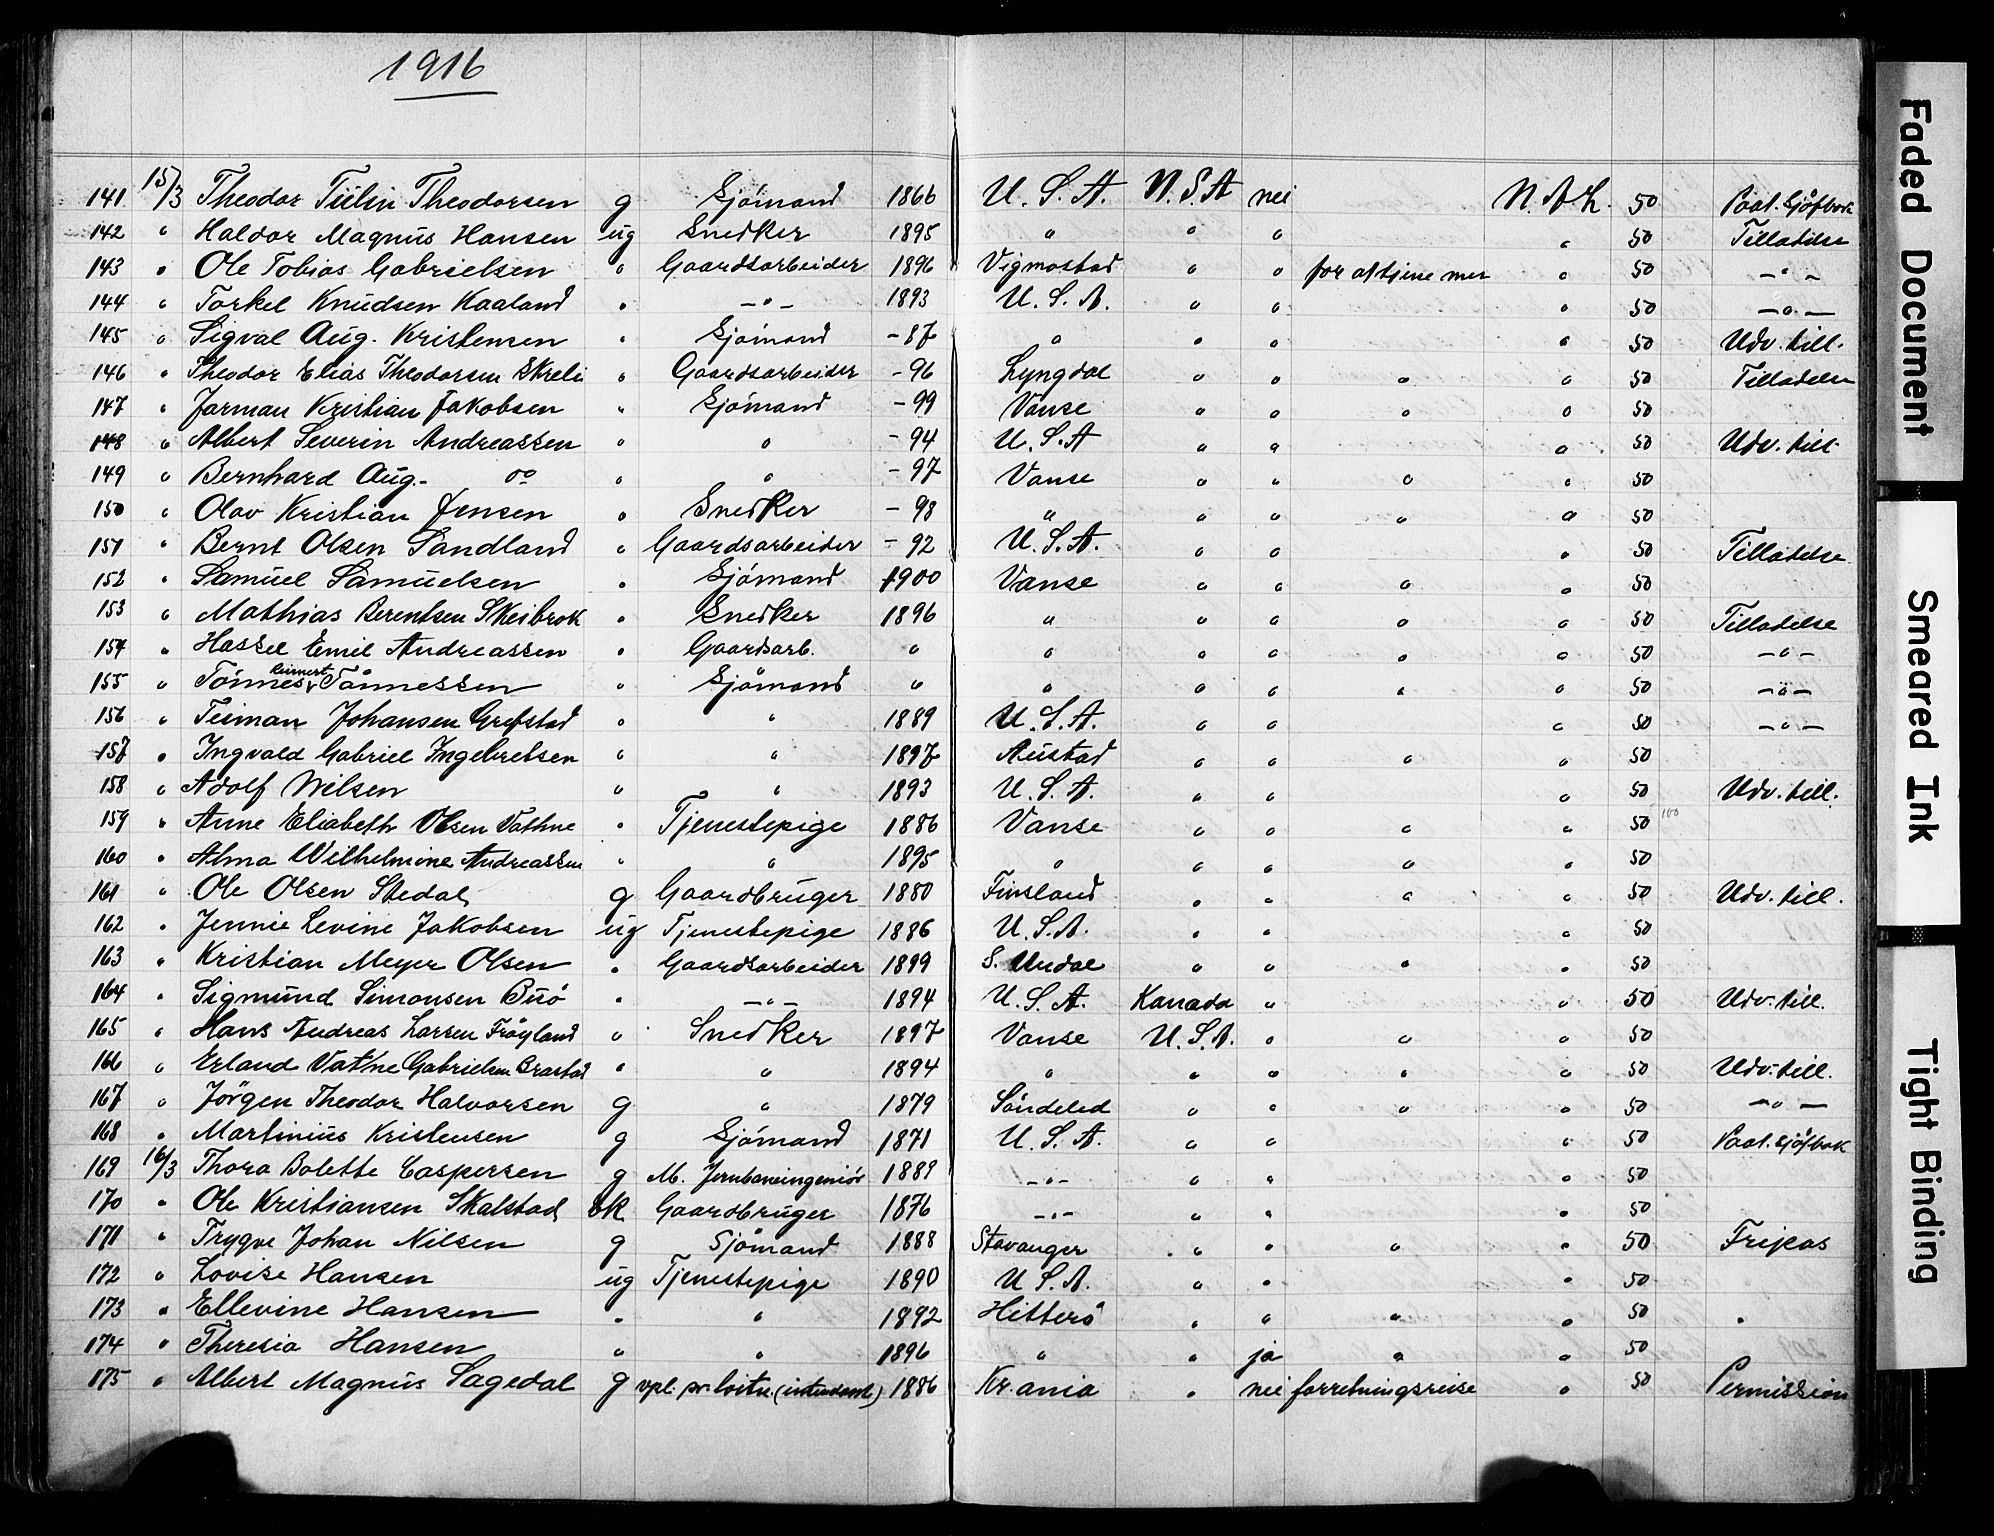 1916
141 15/3 Theodor Tülin Theodorsen g Sjömand 1866 U. S. A. U. S. A nei N. A. L. 50 Paat. Sjöfbok
142 " Haldor Magnus Hansen ug Snedker 1895 " " " " 50 Tilladelse
143 " Ole Tobias Gabrielsen " Gaardsarbeider 1896 Vigmostad " " for at tjene mer " 50 -"-
144 " Torkel Knudsen Kaaland " -"- 1893 U. S. A. " " " 50 -"-
145 " Sigval Aug. Kristensen " Sjömand -87 " " " " 50 Udv. till.
146 " Theodor Elias Theodorsen Skreli " Gaardsarbeider -96 Lyngdal " " " " 50 Tilladelse
147 " Jarman Kristian Jakobsen " Sjömand -99 Vanse " " " " 50
148 " Albert Severin Andreassen " " -94 U. S. A " " " 50 Udv. till.
149 " Bernhard Aug.- do " " -97 Vanse " " " " 50
150 " Olav Kristian Jensen " Snedker -98 " " " " " 50
151 " Bernt Olsen Sandland " Gaardsarbeider -92 U. S. A. " " " 50 Tilladelse
152 " Samuel Samuelsen " Sjömand 1900 Vanse " " " " 50
153 " Mathias Berentsen Skeibrok " Snedker 1896 " " " " " 50 Tilladelse
154 " Hassel Emil Andreassen " Gaardsarb. " " " " " " 50 -"-
155 " Tönnes Reinert Tönnessen " Sjömand " " " " " " 50 -"-
156 " Teiman Johansen Grefstad " " 1889 U. S. A. " " " 50 -"-
157 " Ingvald Gabriel Ingebretsen " " 1897 Austad " " " " 50
158 " Adolf Nilsen " " 1893 U. S. A. " " " 50 Udv. till.
159 " Anne Elisabeth Olsen Vathne " Tjenestepige 1886 Vanse " " " " 50 100
160 " Alma Wilhelmine Andreassen " " 1895 " " " " " 50
161 " Ole Olsen Stedal g Gaardbruger 1880 Finsland " " " " 50 Udv. till.
162 " Jennie Levine Jakobsen ug Tjenestepige 1886 U. S. A. " " " 50
163 " Kristian Meyer Olsen " Gaardsarbeider 1899 S. Undal " " " " 50
164 " Sigmund Simonsen Buö " -"- 1894 U. S. A. Kanada " " 50 Udv. till.
165 " Hans Andreas Larsen Fröyland " Snedker 1897 Vanse U. S. A. " " " 50
166 " Erland Vathne Gabrielsen Brastad " " 1894 " " " " " 50 Udv. till.
167 " Jörgen Theodor Halvorsen g " 1879 Söndeled " " " " 50 -"-
168 " Martinius Kristensen g Sjömand 1871 U. S. A. " " " 50 Paat. Sjöfbok
169 16/3 Thora Bolette Caspersen g M. Jernbaneingeniör 1889 -"- " " 50
170 " Ole Kristiansen Skalstad Ek Gaardbruger 1876 -"- " " " 50
171 " Trygve Johan Nilsen g Sjömand 1888 Stavanger " " " " 50 Fripas
172 " Lovise Hansen ug Tjenestepige 1890 U S. A. " " " 50
173 " Ellevine Hansen " " 1892 Hitterö " " " " 50 "
174 " Theresia Hansen " " 1896 " " ja " " 50
175 " Albert Magnus Sagedal g vpl. pr. löitn. (intendant) 1886 Kr.ania " nei forretningsreise " 50 Permission
Faded Document
Smeared Ink
Tight Binding